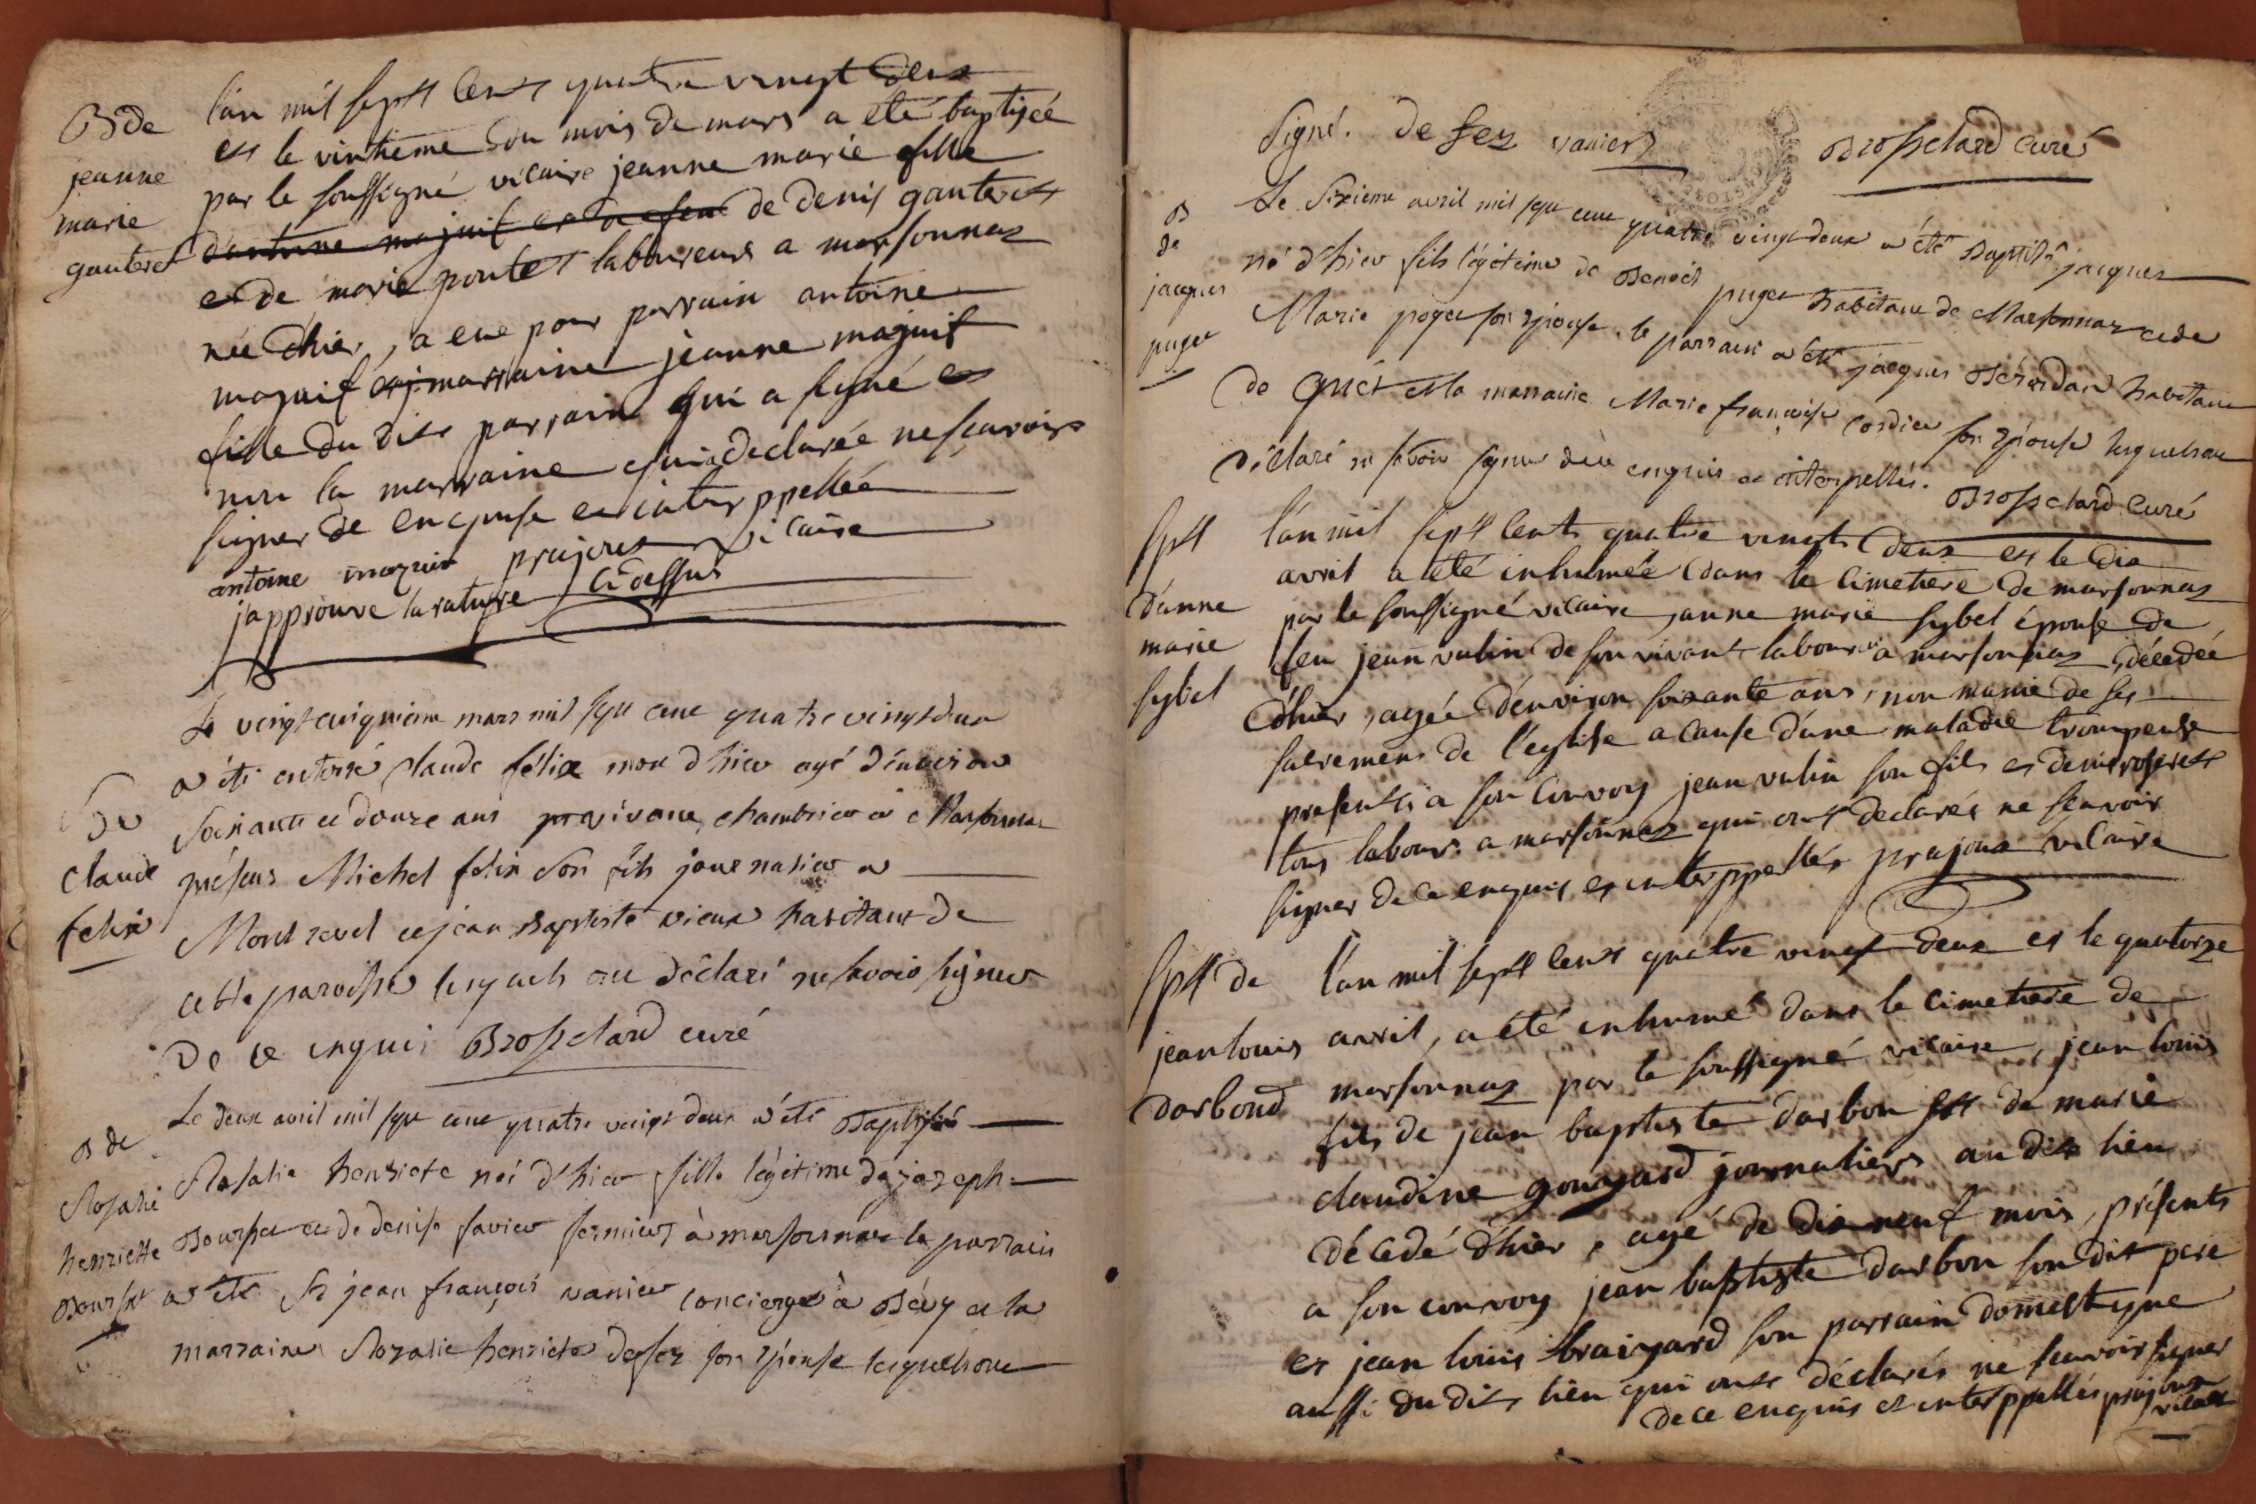 B de
jeanne
marie
gauteret
l'an mil sept cent quatre vingt deux
et le vintieme du mois de mars a eté baptisée
par le soussigné vicaire jeanne marie fille
d'antoine majuif et de feu de denis gauteret
et de marie pontet laboureurs a marsonnas
née d'hier, a eue pour parrain antoine
majuif et marraine jeanne majuif
fille du dit parrain qui a signé et
non la marraine qui a declarée ne sçavoir
signer de ce enquise et interppellée
antoine prajoux vicaire
japprouve la rature ci dessus
de
claude
felix
Le vingt cinquieme mars mil sept cent quatre vingt deux
a été enterré claude félix mort d'hier agé d'environ
soixante et douze ans vivant, chambrier à Marsonnas
présens Michel felix son fils journalier a
Montrevel et jean Baptiste vieux habitant de
cette paroisse lesquels ont déclaré ne savoir signer
De ce enquis Brosselard curé
B de
Rosalie
henriette
Boursset
Le deux avril mil sept cent quatre vingt deux a été Baptisé
Rosalie henriete née d'hier fille légitime de joseph
Boursset et de denise favier fermiers à marsonnas le parrain
a été Sr jean françois vanier concierge à Bévy et la
marraine Rozalie henriete defez son épouse lesquels ont
Signé. de fez vanier Brosselard curé
B
de
jacques
puget
Le sixieme avril mil sept cent quatre vingt deux a été Baptisé jacques
né d'hier fils légitime de Benoit puget habitant de Marsonnas et de
Marie poget son épouse. le parrain a été jacques habitant
de Cuet et la marraine Marie françoise cordier son épouse lesquels ont
Déclaré ne savoir signer de ce enquis et interpellés. Brosselard Curé
Spt
d'anne
marie
sybel
l'an mil sept cent quatre vingt deux et le dix
avril a été inhumée dans le cimetiere de marsonnas
par le soussigné vicaire, anne marie sybel épouse de
feu jean vulin de son vivant labour a marsonnas décédée
d'hier, agée d'environ soixante ans, non munie de ses
sacremens de l'eglise a cause d'une maladie trompeuse
presents a son convoy jean vulin son fils et denis
tous labour. a marsonnas qui ont declarés ne sçavoir
signer de ce enquis et interppellés prajoux vicaire
Spt de
jean louis
darbond
l'an mil sept cent quatre vingt deux et le quatorze
avril, a été inhumé dans le cimetiere de
marsonnas par le soussigné vicaire, jean louis
fils de jean baptiste darbon et de marie
claudine gougard journaliers au dit lieu
décédé d'hier, agé de dix neuf mois, présents
a son convoy jean baptiste darbon son dit pere
et jean louis braizard son parrain domestique
aussi du dit lieu qui ont déclarés ne sçavoir signer
de ce enquis et interppellés prajoux
vicaire